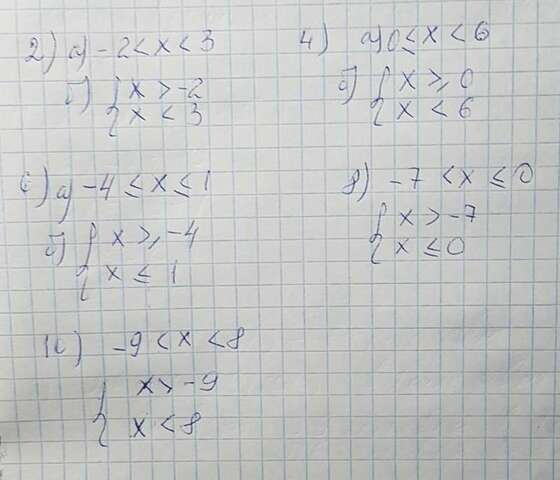 2) а) -2 < x < 3
б) { x > -2
x < 3
4) а) 0 ≤ x < 6
б) { x ≥ 0
x < 6
6) а) -4 ≤ x ≤ 1
б) { x ≥ -4
x ≤ 1
8) -7 < x ≤ 0
{ x > -7
x ≤ 0
10) -9 < x < 8
{ x > -9
x < 8